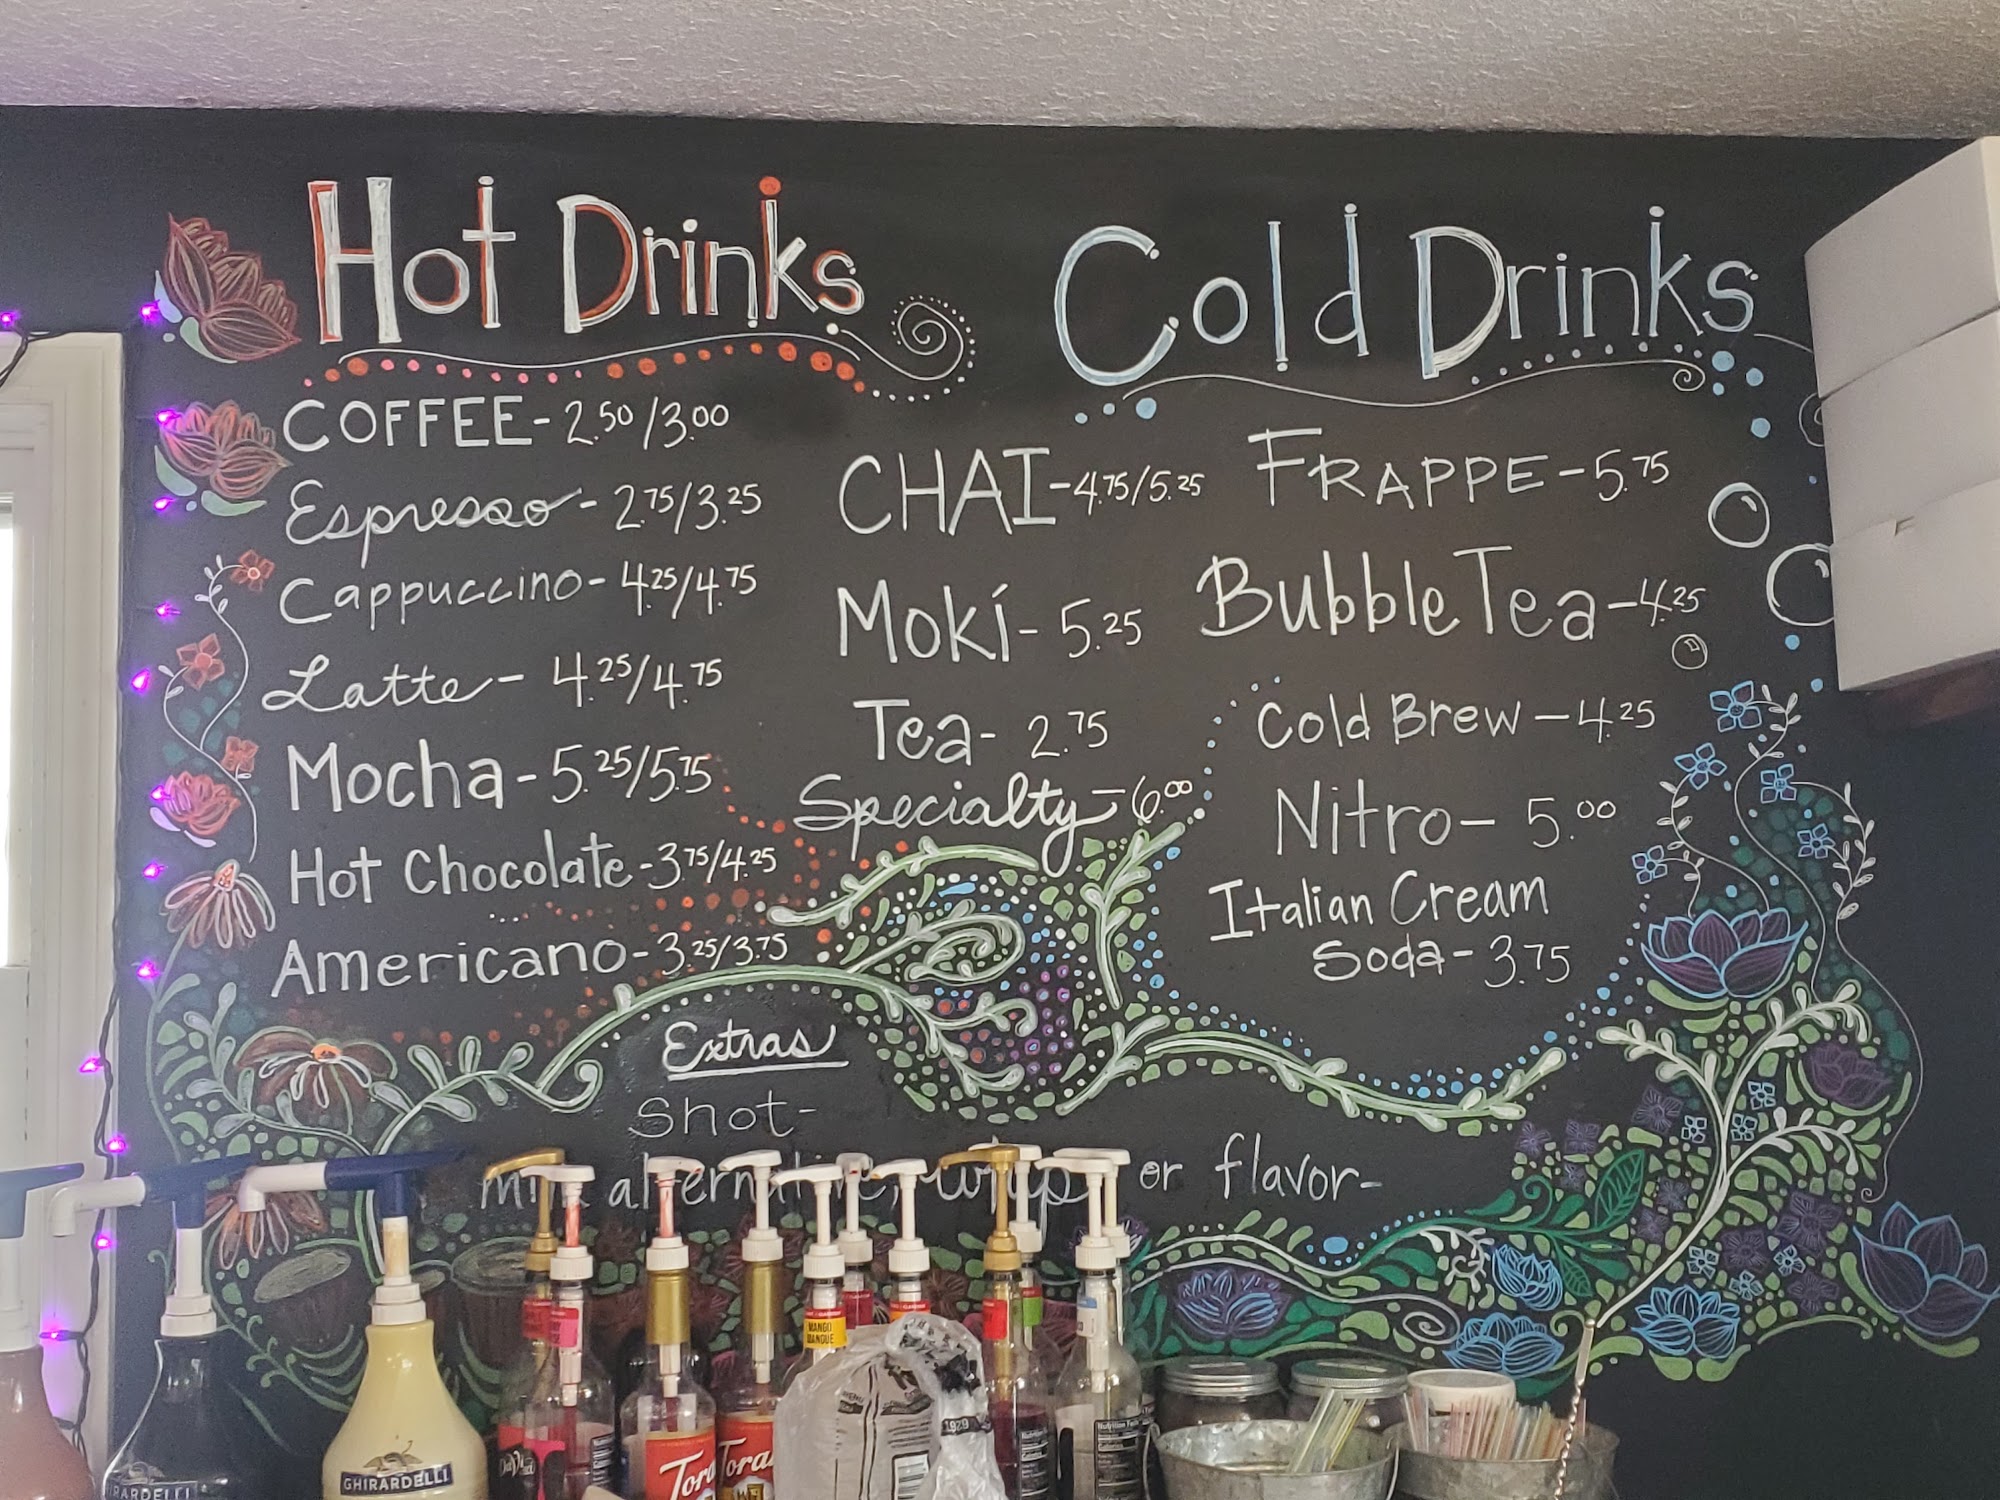 Hot Drinks
COFFEE - 2.50/3.00
Espresso - 2.75/3.25
Cappuccino - 4.25/4.75
Latte - 4.25/4.75
Mocha - 5.25/5.75
Hot Chocolate - 3.75/4.25
Americano - 3.25/3.75
CHAI - 4.75/5.25
Mokí - 5.25
Tea - 2.75
Specialty - 6.00
Cold Drinks
FRAPPE - 5.75
Bubble Tea - 4.25
Cold Brew - 4.25
Nitro - 5.00
Italian Cream
Soda - 3.75
Extras
Shot -
milk alternative, whip or flavor -
MANGO
MANGUE
GHIRARDELLI
DaVinci
Tora
Tora
1929
Nutrition Facts